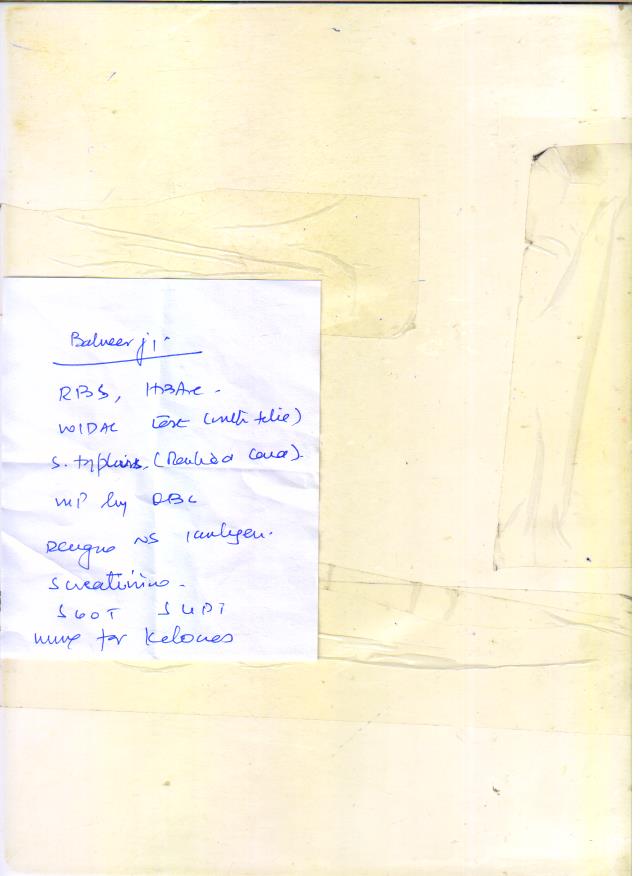 Balveer ji -
RBS, HBA1c -
WIDAL test (with titre)
S. typhi
MP by QBC
Dengue NS 1 antigen.
S creatinine -
SGOT SGPT
urine for Ketones